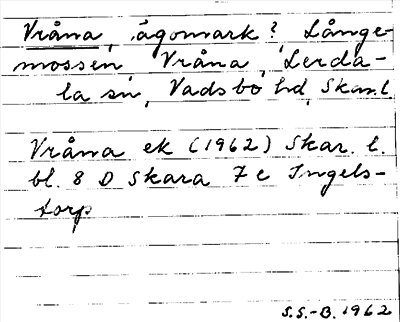 Vråna, ägomark?, Långe-
mossen Vråna, Lerda-
la sn, Vadsbo hd, Skar. l.
Vråna ek (1962) Skar. l.
bl. 8 D Skara 7 c Ingels-
torp
S.S.-B. 1962